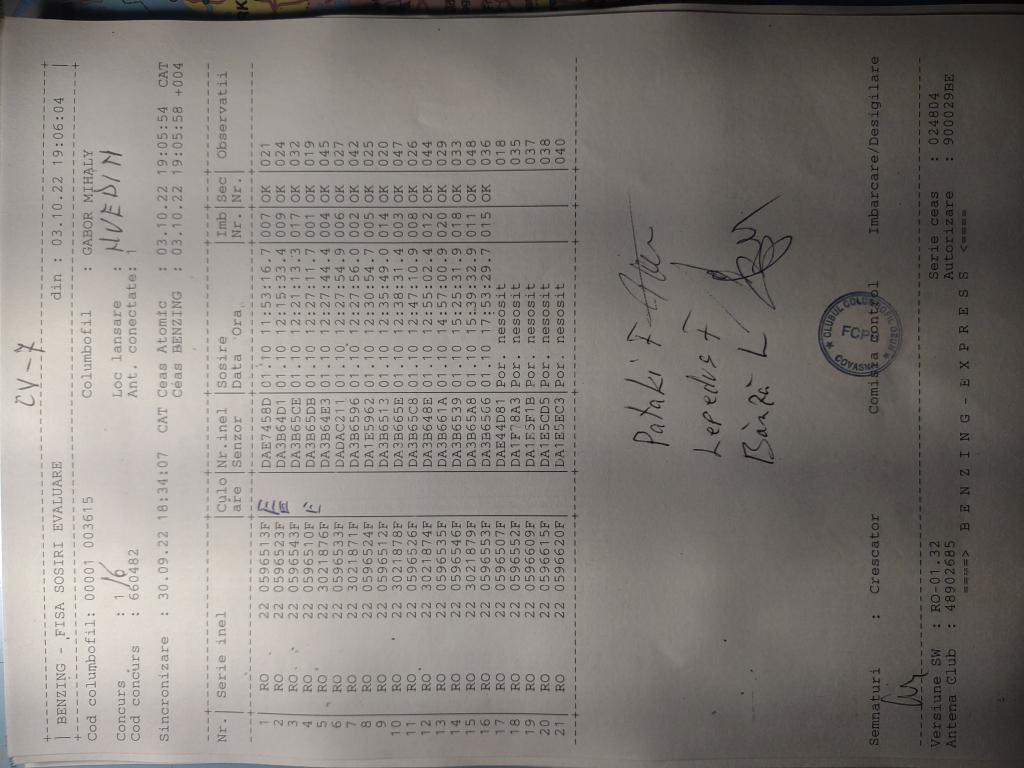 CV-7
| BENZING - FISA SOSIRI EVALUARE din : 03.10.22 19:06:04 |
Cod columbofil: 00001 003615 Columbofil : GABOR MIHALY
Concurs : 1/6 Loc lansare : NVEDIN
Cod concurs : 660482 Ant. conectate: 1
Sincronizare : 30.09.22 18:34:07 CAT Ceas Atomic : 03.10.22 19:05:54 CAT
Ceas BENZING : 03.10.22 19:05:58 +004
Nr.| Serie inel |Culo|Nr inel |Sosire |Imb|Sec| Observatii
|are |Senzor |Data Ora |Nr.|Nr.|
1 | RO 22 0596513F| F |DAE7458D|01.10 11:53:16.7|007|OK | 021
2 | RO 22 0596523F| F |DA3B64D1|01.10 12:15:33.4|009|OK | 024
3 | RO 22 0596543F| |DA3B65CE|01.10 12:21:13.3|017|OK | 032
4 | RO 22 0596511F| F |DA3B65DB|01.10 12:27:11.7|001|OK | 019
5 | RO 22 3021876F| |DA3B64E3|01.10 12:27:44.4|004|OK | 045
6 | RO 22 0596533F| |DADAC211|01.10 12:27:54.9|006|OK | 027
7 | RO 22 3021871F| |DA3B6596|01.10 12:27:56.0|002|OK | 042
8 | RO 22 0596524F| |DA1E5962|01.10 12:30:54.7|005|OK | 025
9 | RO 22 0596512F| |DA3B6513|01.10 12:35:49.0|014|OK | 020
10 | RO 22 3021878F| |DA3B665E|01.10 12:38:31.4|003|OK | 047
11 | RO 22 0596526F| |DA3B65C8|01.10 12:47:10.9|008|OK | 026
12 | RO 22 3021874F| |DA3B648E|01.10 12:55:02.4|012|OK | 044
13 | RO 22 0596535F| |DA3B661A|01.10 14:57:00.9|020|OK | 029
14 | RO 22 0596546F| |DA3B6539|01.10 15:25:31.9|018|OK | 033
15 | RO 22 3021879F| |DA3B65A8|01.10 15:39:32.9|011|OK | 048
16 | RO 22 0596553F| |DA3B6566|01.10 17:53:29.7|015|OK | 036
17 | RO 22 0596507F| |DAE44D81|Por. nesosit | | 018
18 | RO 22 0596552F| |DA1F78A3|Por. nesosit | | 035
19 | RO 22 0596609F| |DA1E5F1B|Por. nesosit | | 037
20 | RO 22 0596615F| |DA1E5CD5|Por. nesosit | | 038
21 | RO 22 0596620F| |DA1E5EC3|Por. nesosit | | 040
Pataki F
Lepedus F
Bànra L
CLUBUL COLUMBOFIL
FCPR
COVASNA
Semnaturi : Crescator Comisia control Imbarcare/Desigilare
Versiune SW : RO-01.32 Serie ceas : 024804
Antena Club : 48902685 Autorizare : 900029BE
====> B E N Z I N G - E X P R E S S <====